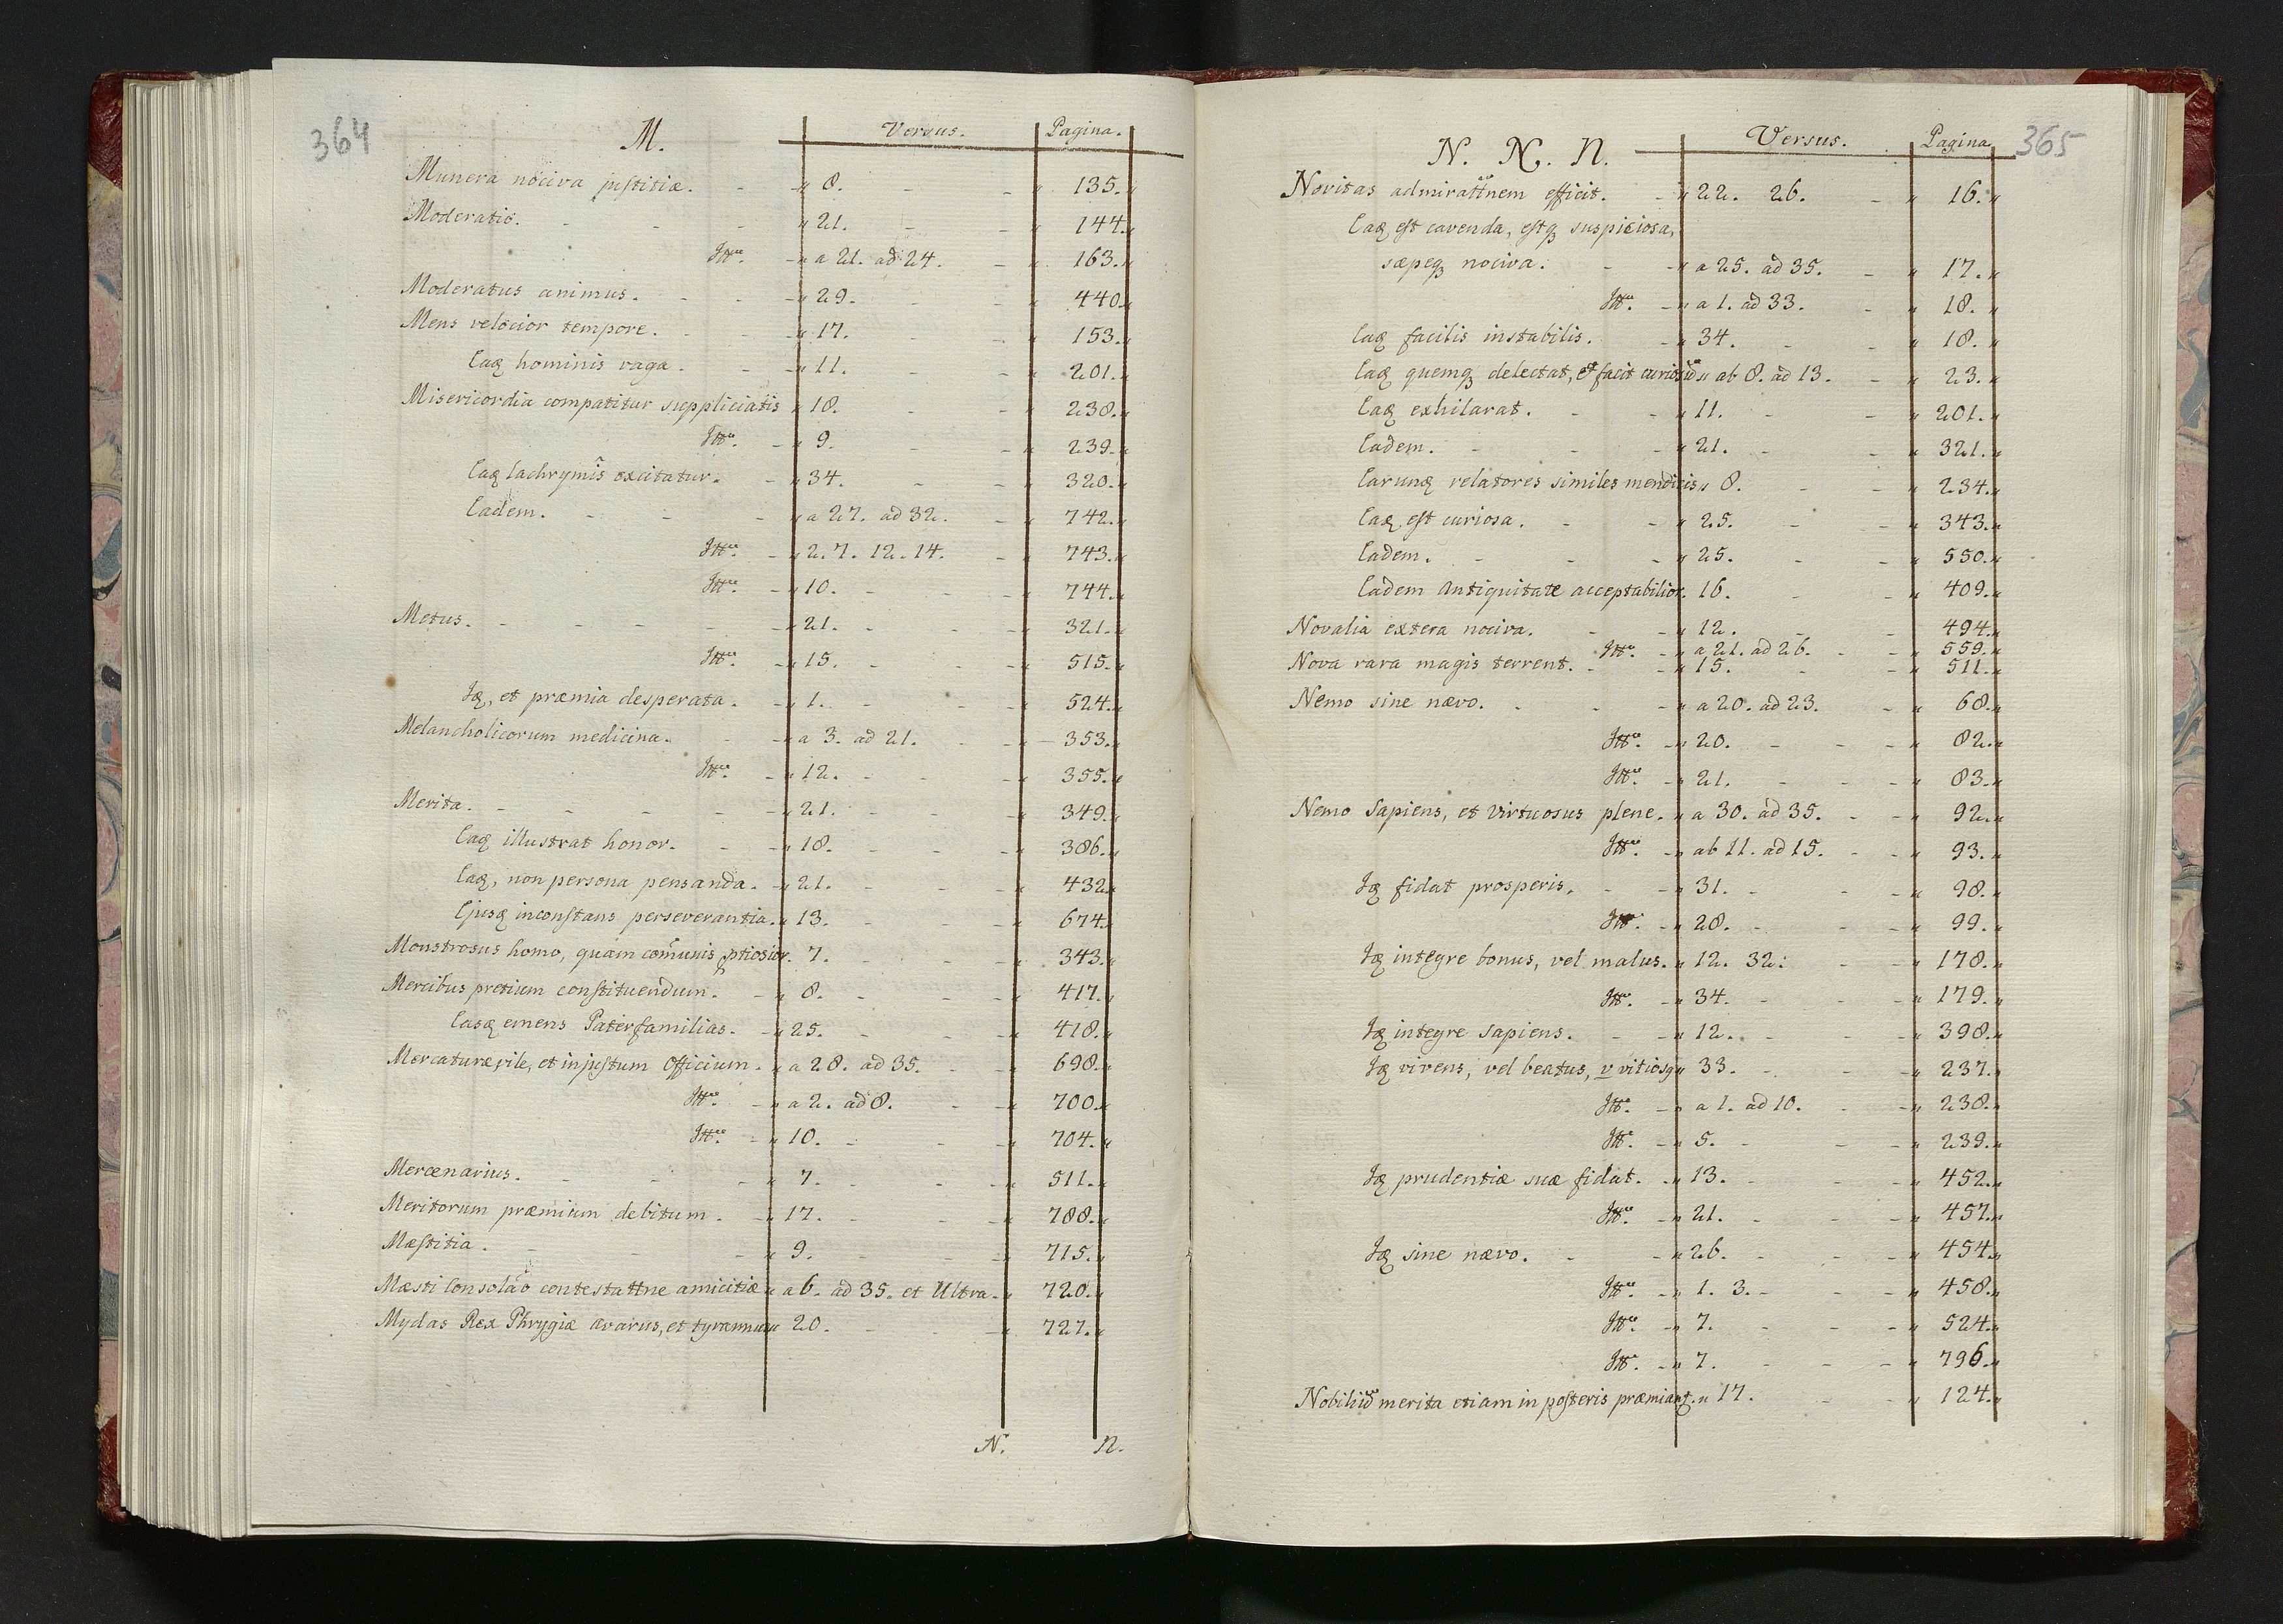 364
M. Versus. Pagina.
Munera nociva justitiæ. - „ 8. - - „ 135. „
Moderatio. - - - „ 21. - - „ 144. „
Itt. - „ a 21. ad 24. - „ 163. „
Moderatus animus. - - „ 29. - - „ 440. „
Mens velocior tempore. - - „ 17. - - „ 153. „
Eaq hominis vaga. - „ 11. - - „ 201. „
Misericordia compatitur suppliciatis „ 18. - - „ 238. „
Itt. - „ 9. - - „ 239. „
Eaq lachrymis excitatur. - „ 34. - - „ 320. „
Eadem. - - - „ a 27. ad 32. - „ 742. „
Itt. - „ 2. 7. 12. 14. - „ 743. „
Itt. - „ 10. - - „ 744. „
Metus. - - - - „ 21. - - „ 321. „
Itt. - „ 15. - - „ 515. „
Iq, et præmia desperata. - „ 1. - - „ 524. „
Melancholicorum medicina. - „ a 3. ad 21. - - „ 353. „
Itt. - „ 12. - - „ 355. „
Merita. - - - - „ 21. - - „ 349. „
Eaq illustrat honor. - - „ 18. - - „ 386. „
Eaq, non persona pensanda. - „ 21. - - „ 432. „
Ejusq inconstans perseverantia. „ 13. - - „ 674. „
Monstrosus homo, quam comunis ptiosior. 7. - - „ 343. „
Mercibus pretium constituendum. - „ 8. - - „ 417. „
Easq emens Paterfamilias. - „ 25. - - „ 418. „
Mercaturæ vile, et injustum Officium. „ a 28. ad 35. - - „ 698. „
Itt. - „ a 2. ad 8. - - „ 700. „
Itt. - „ 10. - - „ 704. „
Mercenarius. - - - „ 7. - - „ 511. „
Meritorum præmium debitum. - „ 17. - - „ 788. „
Mæstitia. - - - „ 9. - - „ 715. „
Mæsti Consolao contestattne amicitiæ „ a 6. ad 35. et Ultra. - „ 720. „
Mydas Rex Phrygiæ avarus, et tyrannus „ 20. - - „ 727. „
N. N.
365
N. N. N. Versus. Pagina
Novitas admirattnem efficit. - „ 22. 26. - „ 16. „
Eaq est cavenda, estq suspiciosa,
sæpeq nociva. - - „ a 25. ad 35. - „ 17. „
Itt. - „ a 1. ad 33. - „ 18. „
Eaq facilis instabilis. - „ 34. - - „ 18. „
Eaq quemq delectat, et facit curiosu „ ab 8. ad 13. - „ 23. „
Eaq exhilarat. - - „ 11. - - „ 201. „
Eadem. - - - „ 21. - - „ 321. „
Earunq relatores similes mendicis „ 8. - - „ 234. „
Eaq est curiosa. - - „ 25. - - „ 343. „
Eadem. - - - „ 25. - - „ 550. „
Eadem Antiquitate acceptabilior. 16. - - „ 409. „
Novalia extera nociva. - - „ 12. - - „ 494. „
Itt. - „ a 21. ad 26. - - „ 559. „
Nova rara magis terrent. - - „ 15. - - „ 511. „
Nemo sine nævo. - - - „ a 20. ad 23. - „ 68. „
Itt. - „ 20. - - - „ 82. „
Itt. - „ 21. - - - „ 83. „
Nemo Sapiens, et Virtuosus plene. „ a 30. ad 35. - - „ 92. „
Itt. - „ ab 11. ad 15. - - „ 93. „
Iq fidat prosperis. - - „ 31. - - - „ 98. „
Itt. - „ 28. - - - „ 99. „
Iq integre bonus, vel malus. „ 12. 32. - - „ 178. „
Itt. - „ 34. - - - „ 179. „
Iq integre Sapiens. - - „ 12. - - - „ 398. „
Iq vivens, vel beatus, v vitiosq „ 33. - - - „ 237. „
Itt. - „ a 1. ad 10. - - „ 238. „
Itt. - „ 5. - - - „ 239. „
Iq prudentiæ suæ fidat. - „ 13. - - - „ 452. „
Itt. - „ 21. - - - „ 457. „
Iq sine nævo. - - „ 26. - - - „ 454. „
Itt. - „ 1. 3. - - - „ 458. „
Itt. - „ 7. - - - „ 524. „
Itt. - „ 7. - - - „ 796. „
Nobiliu merita etiam in posteris præmiant. „ 17. - - „ 124. „